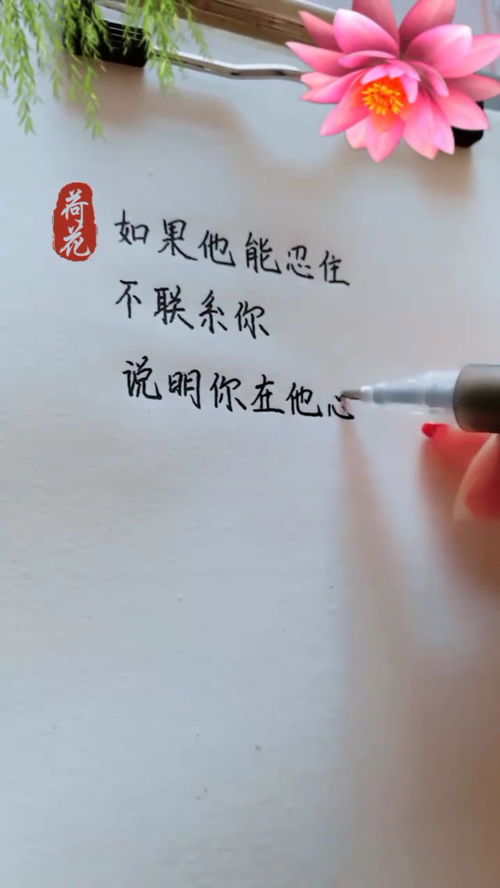 荷花
如果他能忍住
不联系你
说明你在他心